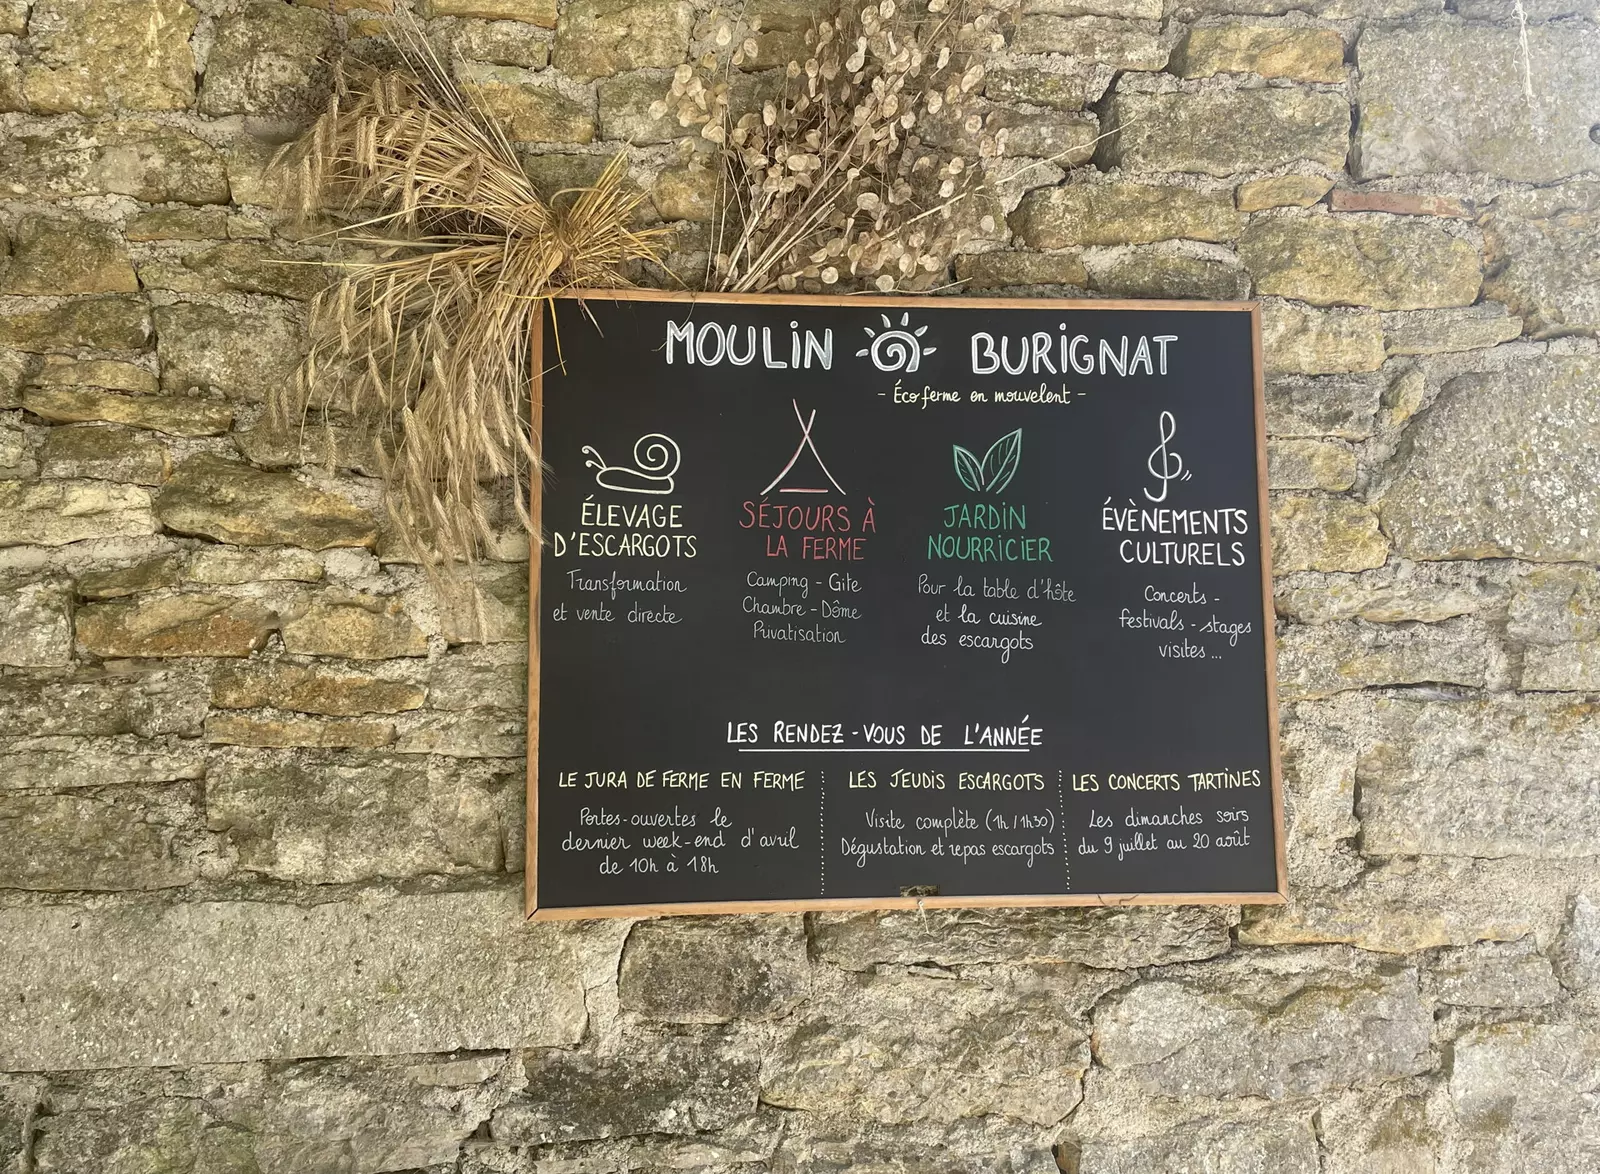 MOULIN BURIGNAT
- Écoferme en mouvelent -
ÉLEVAGE
D'ESCARGOTS
Transformation
et vente directe
SÉJOURS À
LA FERME
Camping - Gite
Chambre - Dôme
Privatisation
JARDIN
NOURRICIER
Pour la table d'hôte
et la cuisine
des escargots
ÉVÈNEMENTS
CULTURELS
Concerts -
festivals - stages
visites ...
LES RENDEZ-VOUS DE L'ANNÉE
LE JURA DE FERME EN FERME
Portes-ouvertes le
dernier week-end d'avril
de 10h à 18h
LES JEUDIS ESCARGOTS
Visite complète (1h/1h30)
Dégustation et repas escargots
LES CONCERTS TARTINES
Les dimanches soirs
du 9 juillet au 20 août